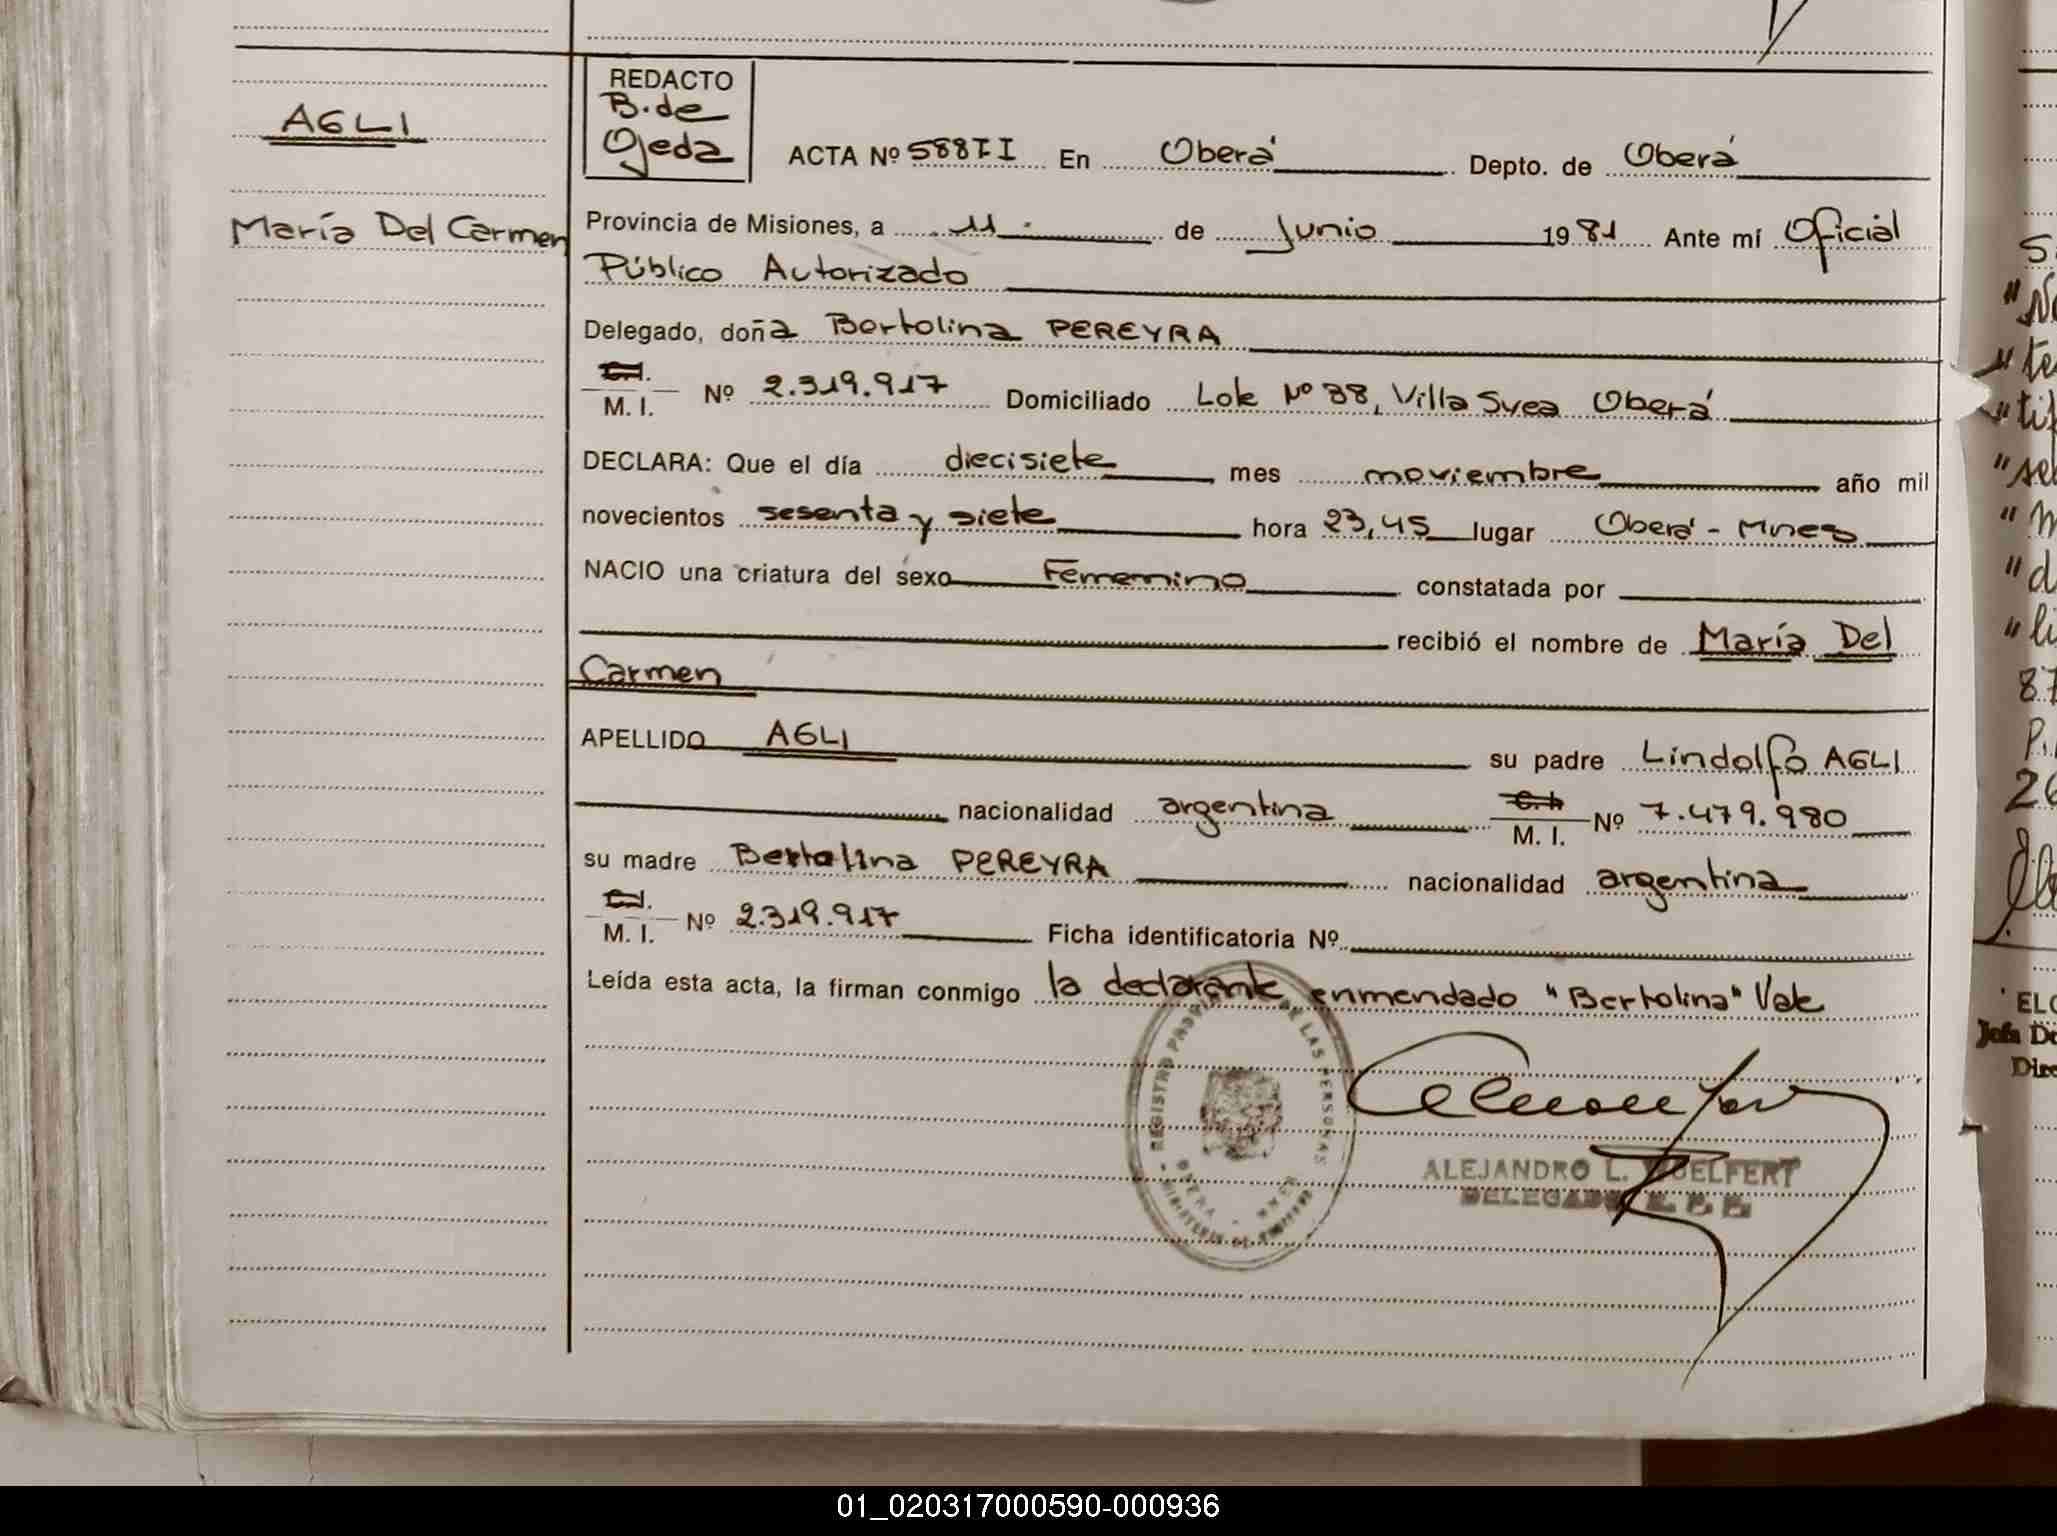 AGLI
María Del Carmen
REDACTO
B. de
Ojeda
ACTA Nº 5887 I En Oberá Depto. de Oberá
Provincia de Misiones, a 11 de Junio 1981 Ante mí Oficial
Público Autorizado
Delegado, doña Bertolina PEREYRA
C.I.
M. I. Nº 2.319.917 Domiciliado Lote Nº 38, Villa Svea Oberá
DECLARA: Que el día diecisiete mes noviembre año mil
novecientos sesenta y siete hora 23,45 lugar Oberá - Mnes
NACIO una criatura del sexo Femenino constatada por
recibió el nombre de María Del
Carmen
APELLIDO AGLI su padre Lindolfo AGLI
nacionalidad argentina C. I. M. I. Nº 7.479.980
su madre Bertolina PEREYRA nacionalidad argentina
C.I.
M. I. Nº 2.319.917 Ficha identificatoria Nº
Leída esta acta, la firman conmigo la declarante enmendado "Bertolina" Vale
REGISTRO DE LAS PERSONAS
ALEJANDRO L.
DELEGADO
01_020317000590-000936